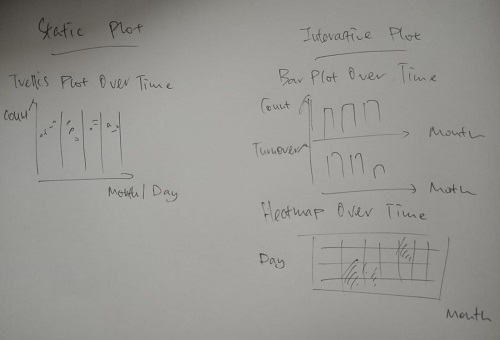 Static Plot
Trellis Plot Over Time
Count
Month/Day
Interactive Plot
Bar Plot Over Time
Count
Month
Turnover
Moth
Heatmap Over Time
Day
Month